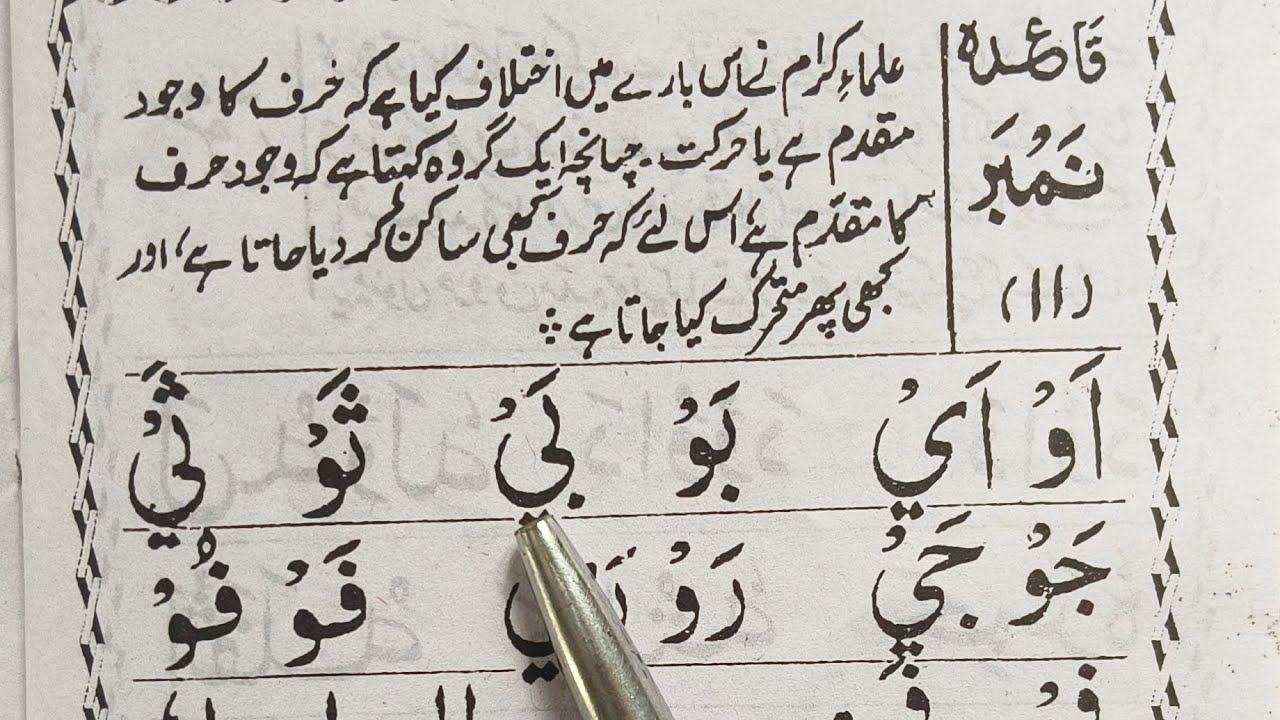 قَاعدہ
نَمْبَر
(۱۱)
علماءِ کرام نے اس بارے میں اختلاف کیا ہے کہ حَرف کا وجود
مقدم ہے یا حرکت ۔ چنانچہ ایک گروہ کہتا ہے کہ وجود حرف
کا مقدّم ہے، اس لئے کہ حرف کبھی ساکن کر دیا جاتا ہے، اور
کبھی پھر متحرّک کیا جاتا ہے
اَوْ اَیْ بَوْ بَیْ ثَوْ ثَیْ
جَوْ جَیْ رَوْ فَوْ فُوْ